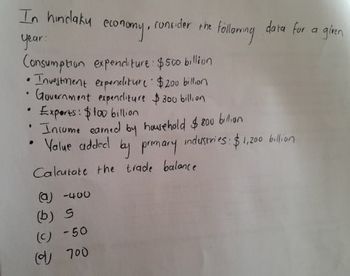 In hindlaku economy, consider the following data for a given
year:
Consumption expenditure: $500 billion
• Investment expenditure: $200 billion
• Government expenditure $300 billion
• Exports: $100 billion
• Income earned by household $800 billion
• Value added by primary industries: $1,200 billion
Calculate the trade balance
(a) -400
(b) 5
(c) -50
(d) 700